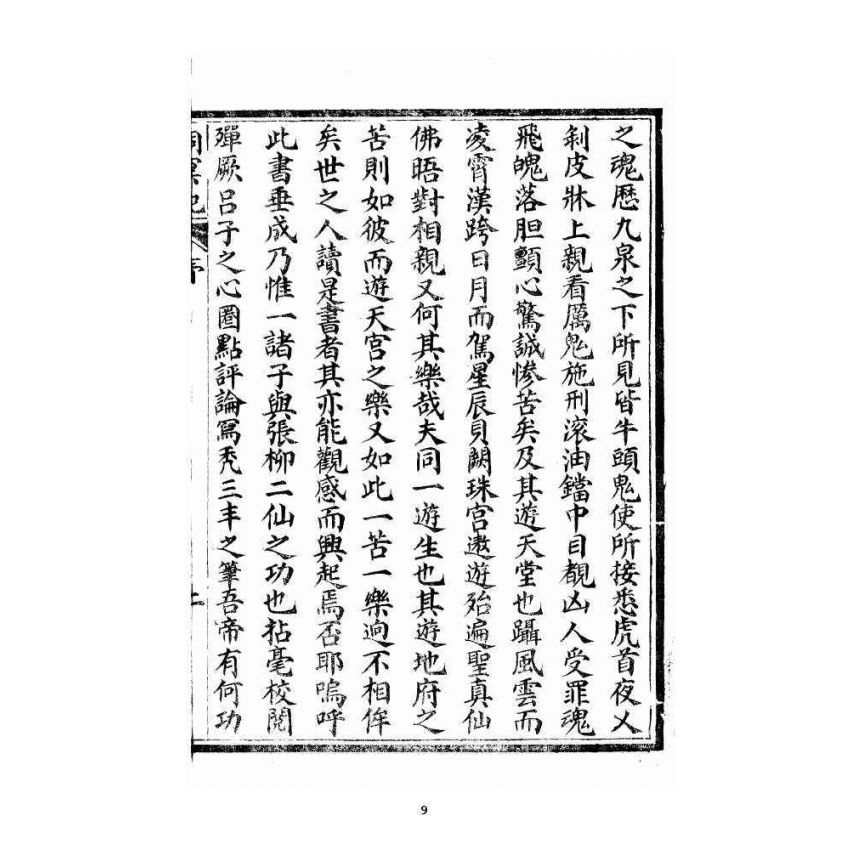 之魂歷九泉之下所見皆牛頭鬼使所接悉虎首夜乂
剝皮牀上親看厲鬼施刑滾油鐺中目覩凶人受罪魂
飛魄落胆顫心驚誠慘苦矣及其遊天堂也躡風雲而
凌霄漢跨日月而駕星辰貝闕珠宮遨遊殆遍聖真仙
佛晤對相親又何其樂哉夫同一遊生也其遊地府之
苦則如彼而遊天宮之樂又如此一苦一樂逈不相侔
矣世之人讀是書者其亦能觀感而興起焉否耶嗚呼
此書垂成乃惟一諸子與張柳二仙之功也拈毫校閱
殫厥呂子之心圈點評論寫秃三丰之筆吾帝有何功
洞冥記 序
9